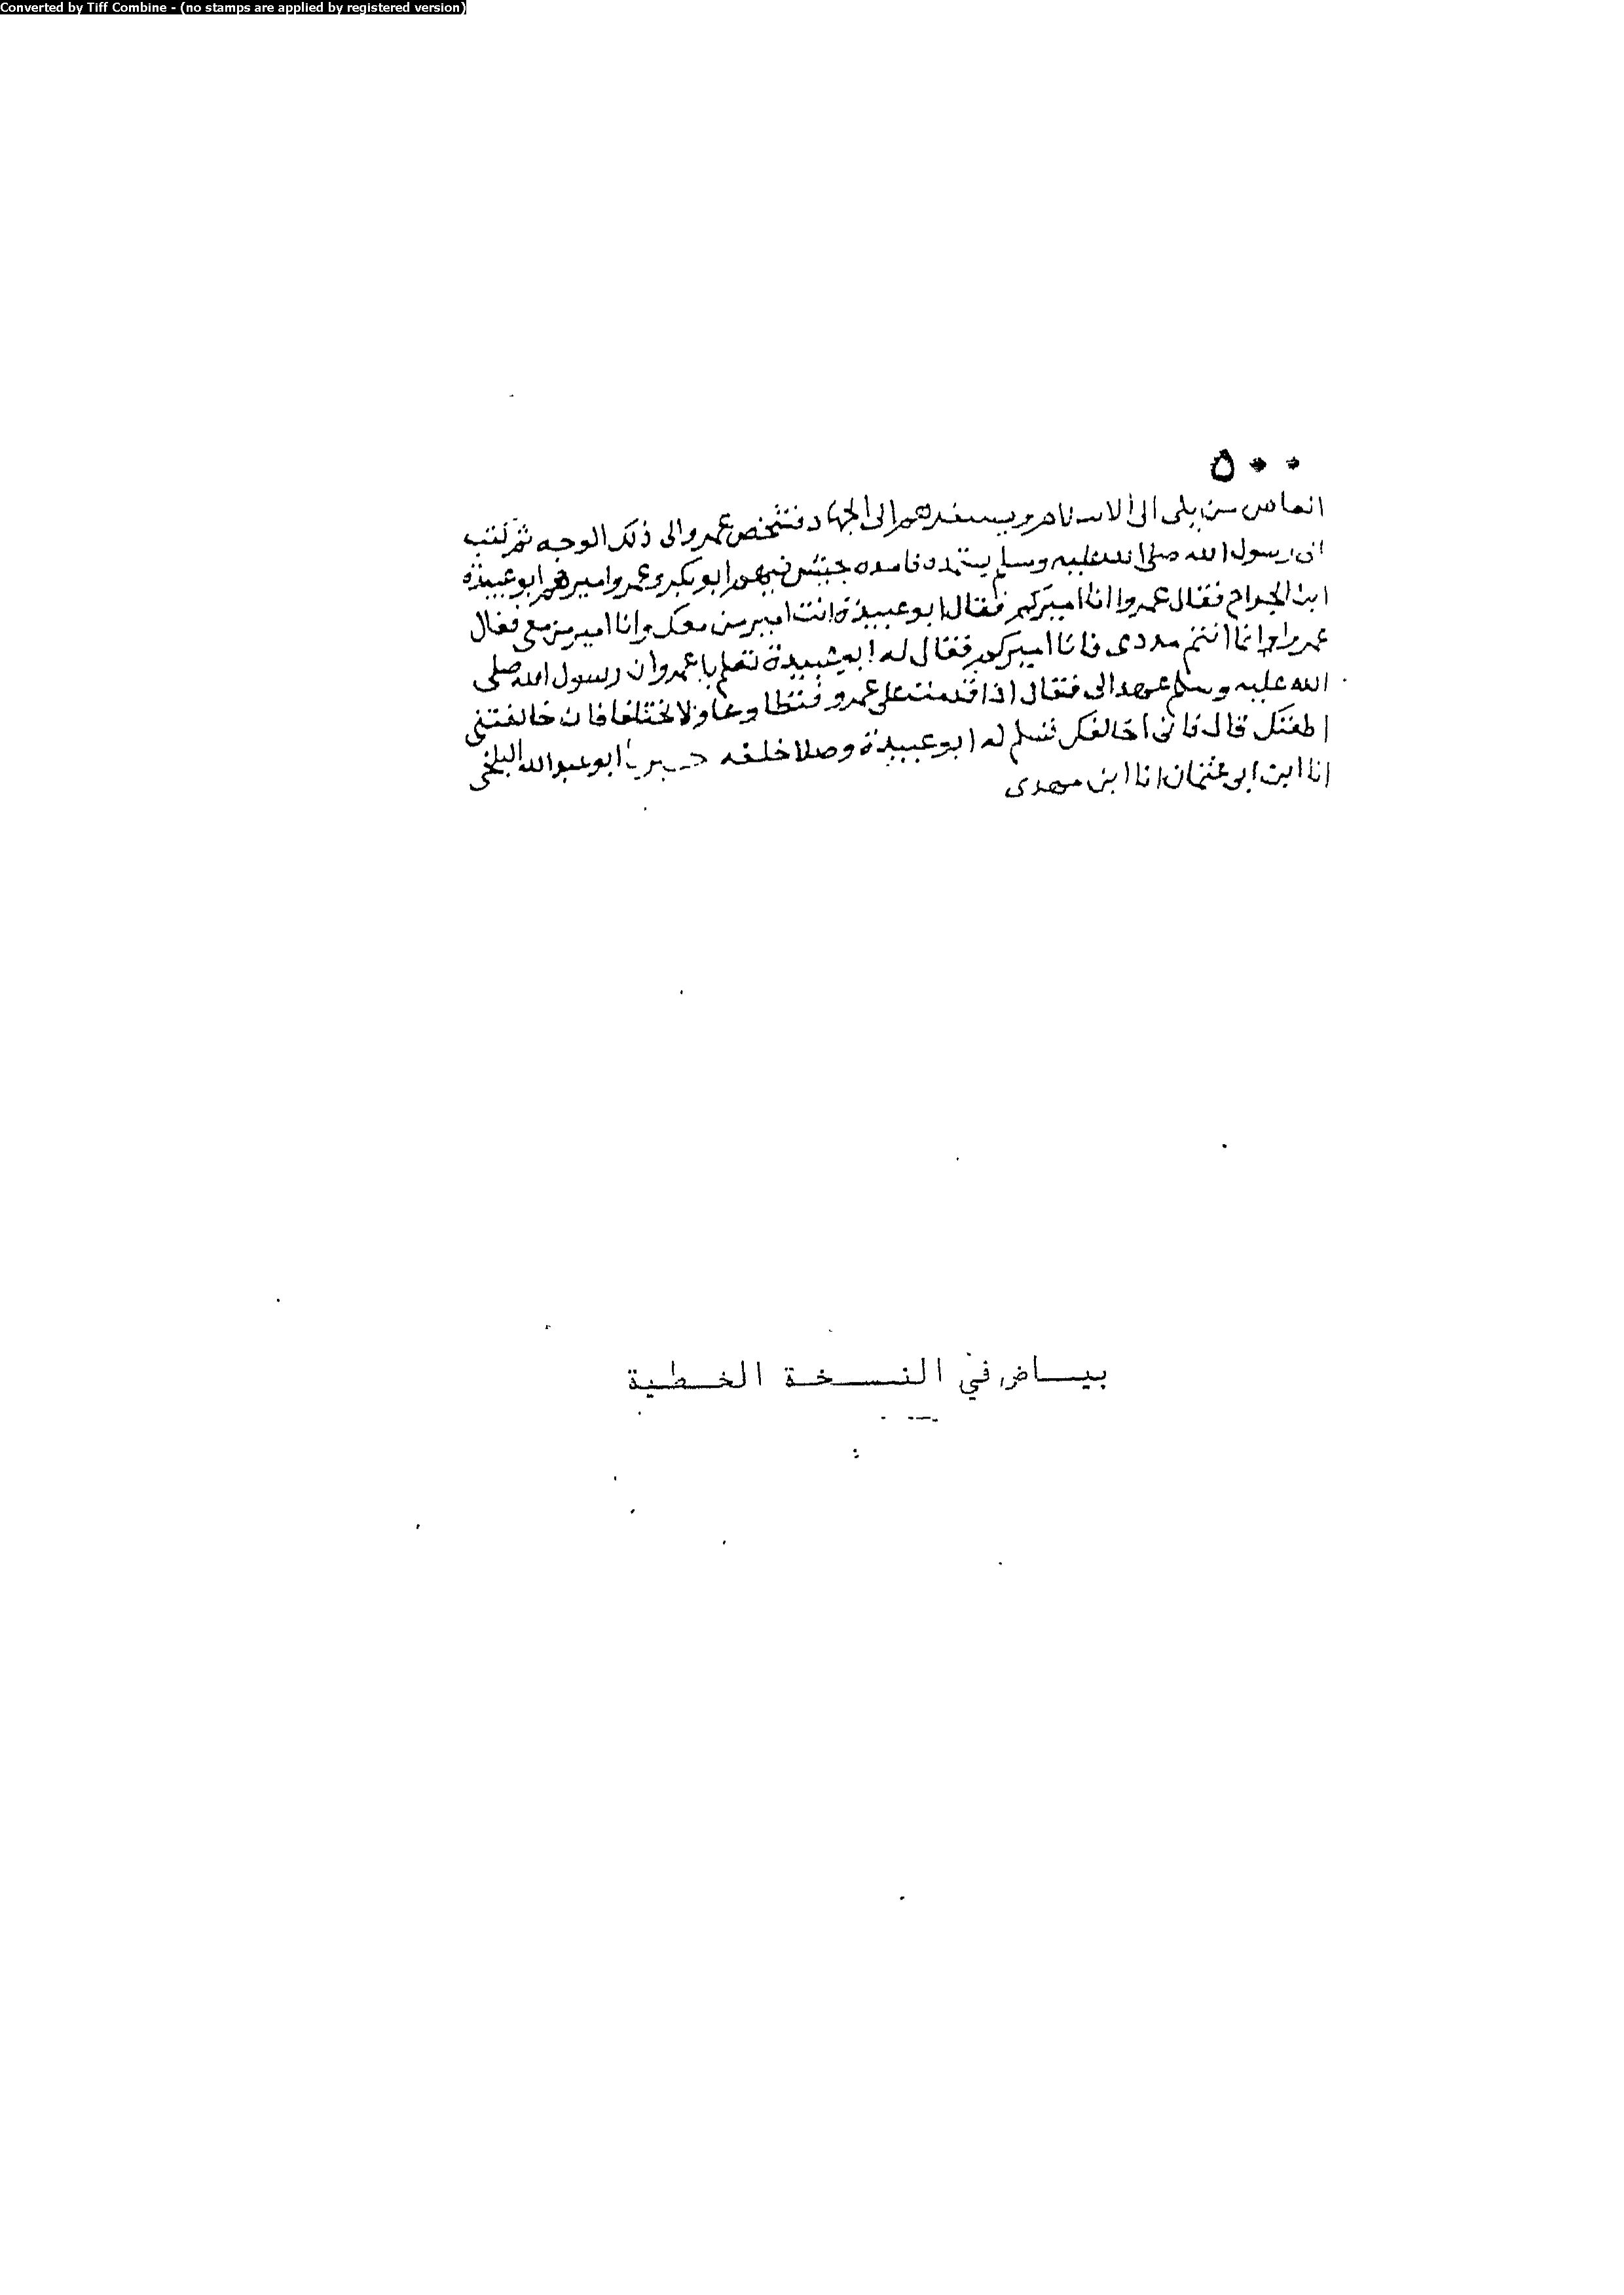 Converted by Tiff Combine - (no stamps are applied by registered version)
٥٠٠
العاص من بلى الى الاسلام ويستنفرهم الى الجهاد فشخص عمرو الى ذلك الوجه ثم كتب
الى رسول الله صلى الله عليه وسلم يستمده فامده بجيش فيهم ابو بكر وعمر واميرهم ابو عبيدة
ابن الجراح فقال عمروا انا اميركم فقال ابو عبيدة انت امير من معك وانا امير من معي فقال
عمروا انما انتم مددى فانا اميركم فقال له ابو عبيدة تعلم يا عمرو ان رسول الله صلى
الله عليه وسلم عهد الى فقال اذا قدمت على عمرو فتطاوعا ولا تختلفا فان خالفتنى
اطعتك قال فانى اخالفك فسلم له ابو عبيدة وصلا خلفه ابو عبدالله البلخى
انا ابن ابى عثمان انا ابن مهدى
بيـاض في النسخة الخطية